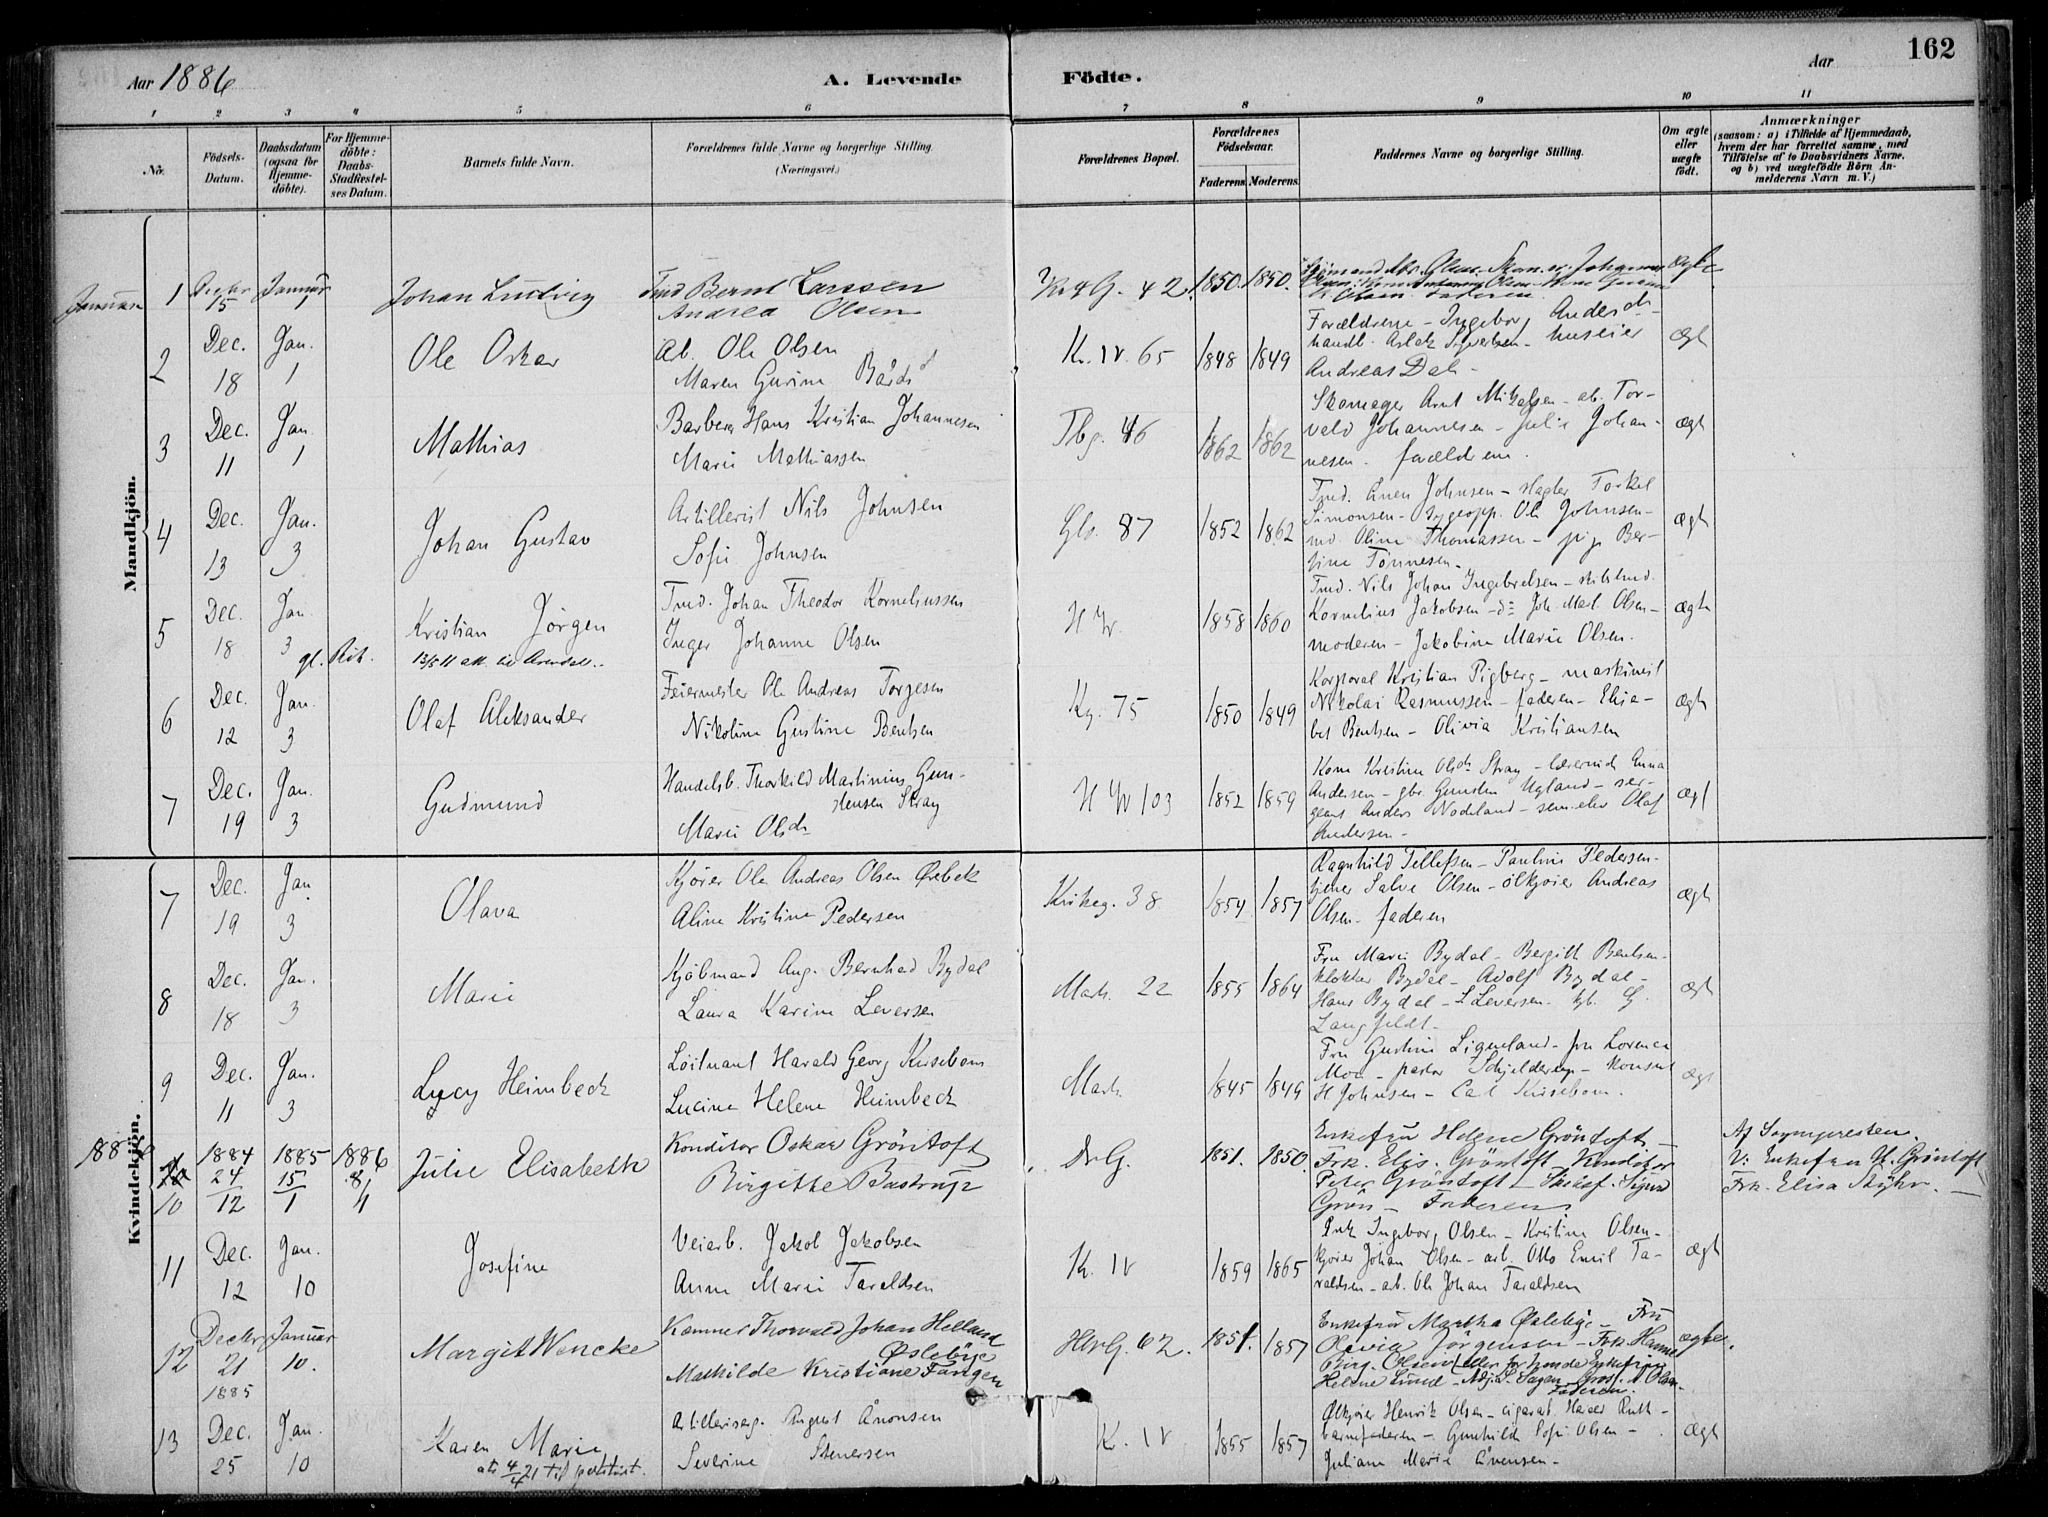 Aar 1886
A. Levende
Födte.
Aar
162
1 2 3 4 5 6 7 8 9 10 11
No.
Födsels-
Datum.
Daabsdatum
(ogsaa for
Hjemme-
döbte).
For Hjemme-
döbte:
Daabs-
Stadfæstel-
ses Datum.
Barnets fulde Navn.
Forældrenes fulde Navne og borgerlige Stilling.
(Næringsvei.)
Forældrenes Bopæl.
Forældrenes
Födselsaar.
Faderens.
Moderens.
Faddernes Navne og borgerlige Stilling.
Om ægte
eller
uægte
födt.
Anmærkninger
(saasom: a) i Tilfælde af Hjemmedaab,
hvem der har forrettet samme, med
Tilföielse af to Daabsvidners Navne,
og b) ved uægtefödte Börn An-
melderens Navn m. V.)
Mandkjön.
Januar
1 Decbr 15 Januar 1
Johan Ludvig
Bernt Larssen
Andrea Olsen
42. 1850. 1850.
Faderen
ægte
2 Dec. 18 Jan. 1
Ole Oskar
Ab. Ole Olsen
Maren Gurine Bårdsd
Kr. IV. 65 1848 1849
Forældrene - Ingeborg Andersdr -
handl. Aslak Syvertsen - huseier
Andreas Dal -
ægt
3 Dec. 11 Jan. 1
Mathias
Barberer Hans Kristian Johannesen
Marie Mathiassen
Tbg. 46 1862 1862
Skomager Arnt Mikalsen - ab. Tor-
vald Johannesen - Julie Johan-
nesen - forældrene.
ægt
4 Dec. 13 Jan. 3
Johan Gustav
Artillerist Nils Johnsen
Sofie Johnsen
Gls. 87 1852 1862
Tmd. Johnsen - slagter Torkel
Simonsen - sygeopp. Ole Johnsen -
md. Oline Thomassen - pige Ber-
tine Tönnesen -
ægt
5 Dec. 18 Jan. 3
Kristian Jörgen
13/5 11 att. til Arendal.
Tmd. Johan Theodor Korneliussen
Inger Johanne Olsen
H W. 1858 1860
Tmd. Nils Johan Ingebretsen -
Kornelius Jakobsen - do Joh. Mat. Olsen -
moderen - Jakobine Marie Olsen.
ægte
6 Dec. 12 Jan. 3
Olaf Aleksander
Feiermester Ole Andreas Torjesen
Nikoline Gustine Bentsen
Kg. 75 1850 1849
Korporal Kristian Pigberg - maskinist
Nikolai Rasmussen - faderen - Elisa-
bet Bentsen - Olivia Kristiansen
ægt
7 Dec. 19 Jan. 3
Gudmund
Handelsb. Thorkild Martinius Gun-
stensen Stray
Marie Olsdr
H W 103 1852 1859
Kone Kristine Olsdr Stray - lærerinde Emma
Andersen - gbr. Gunsten Ugland - ser-
geant Anders Nodeland - sem.elev Olaf
Andersen -
ægt
Kvindekjön.
7 Dec. 19 Jan 3
Olava
Kjörer Ole Andreas Olsen Örbek
Aline Kristine Pedersen
Kirkeg. 38 1854 1857
Ragnhild Tellefsen - Pauline Pedersen -
tjener Salve Olsen - ölkjører Andreas
Olsen - faderen
ægt
8 Dec. 18 Jan. 3
Marie
Kjöbmand Aug. Bernhad Bydal
Laura Karine Leversen
Mark. 22 1855 1864
Fru Marie Bydal - Bergith Bentsen -
klokker Bydal - Adolf Bydal -
Hans Bydal - L. Leversen.
Langfeldt -
ægt
9 Dec. 11 Jan. 3
Lucy Heimbeck
Löitnant Harald Georg Kirsebom
Lucine Helene Heimbeck
Mark. 1845 1849
Fru Gustine Ligneland - fru Lorence
Moe - pastor Schjelderup - konsul
H Johnsen - Carl Kirsebom.
ægt
10 1884 24/12 1885 15/1 1886
Julie Elisabeth
Konditor Oskar Gröntoft
Birgitte Bastrup
Dr G. 1851. 1850.
Enkefru Helene Gröntoft -
Frk. Elis. Gröntoft Konditor
Peter Gröntoft -
Faderen
Af Sognepresten.
V: Enkefru H. Gröntoft
Frk. Elisa
11 Dec. 12 Jan. 10
Josefine
Veiarb. Jakob Jakobsen
Anne Marie Taraldsen
K. IV 1859 1865
Ingeborg Olsen - Kristine Olsen -
kjører Johan Olsen - arb. Otto Emil Ta-
raldsen - arb. Ole Johan Taraldsen
ægt
12 Decbr 21 1885 Januar 10.
Margit Wencke
Kæmner Thorvald Johan Helland
Øslebye
Mathilde Kristiane Fangen
62. 1851. 1857
Enkefru Martha Øslebye - Fru
Olivia Jørgensen - Frk. Hanne
Helene Lund -
Faderen.
ægte.
13 Dec. 25 Jan. 10
Karen Marie
August Ånonsen
Severine Stenersen
K. IV 1855 1857
Ølkjører Henrik Olsen - Harald Ruth -
barnefaderen - Gunhilde Sofie Olsen -
Juliane Marie Evensen -
ægt